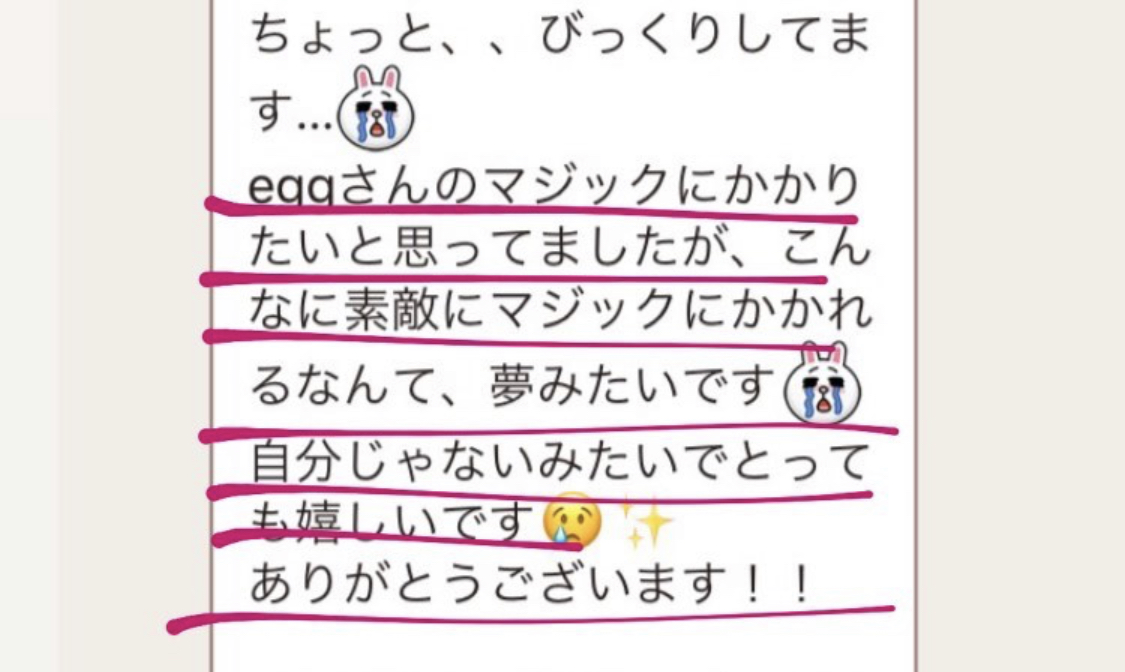 ちょっと、、びっくりしてま
す…
eqqさんのマジックにかかり
たいと思ってましたが、こん
なに素敵にマジックにかかれ
るなんて、夢みたいです
自分じゃないみたいでとって
も嬉しいです😢✨
ありがとうございます！！